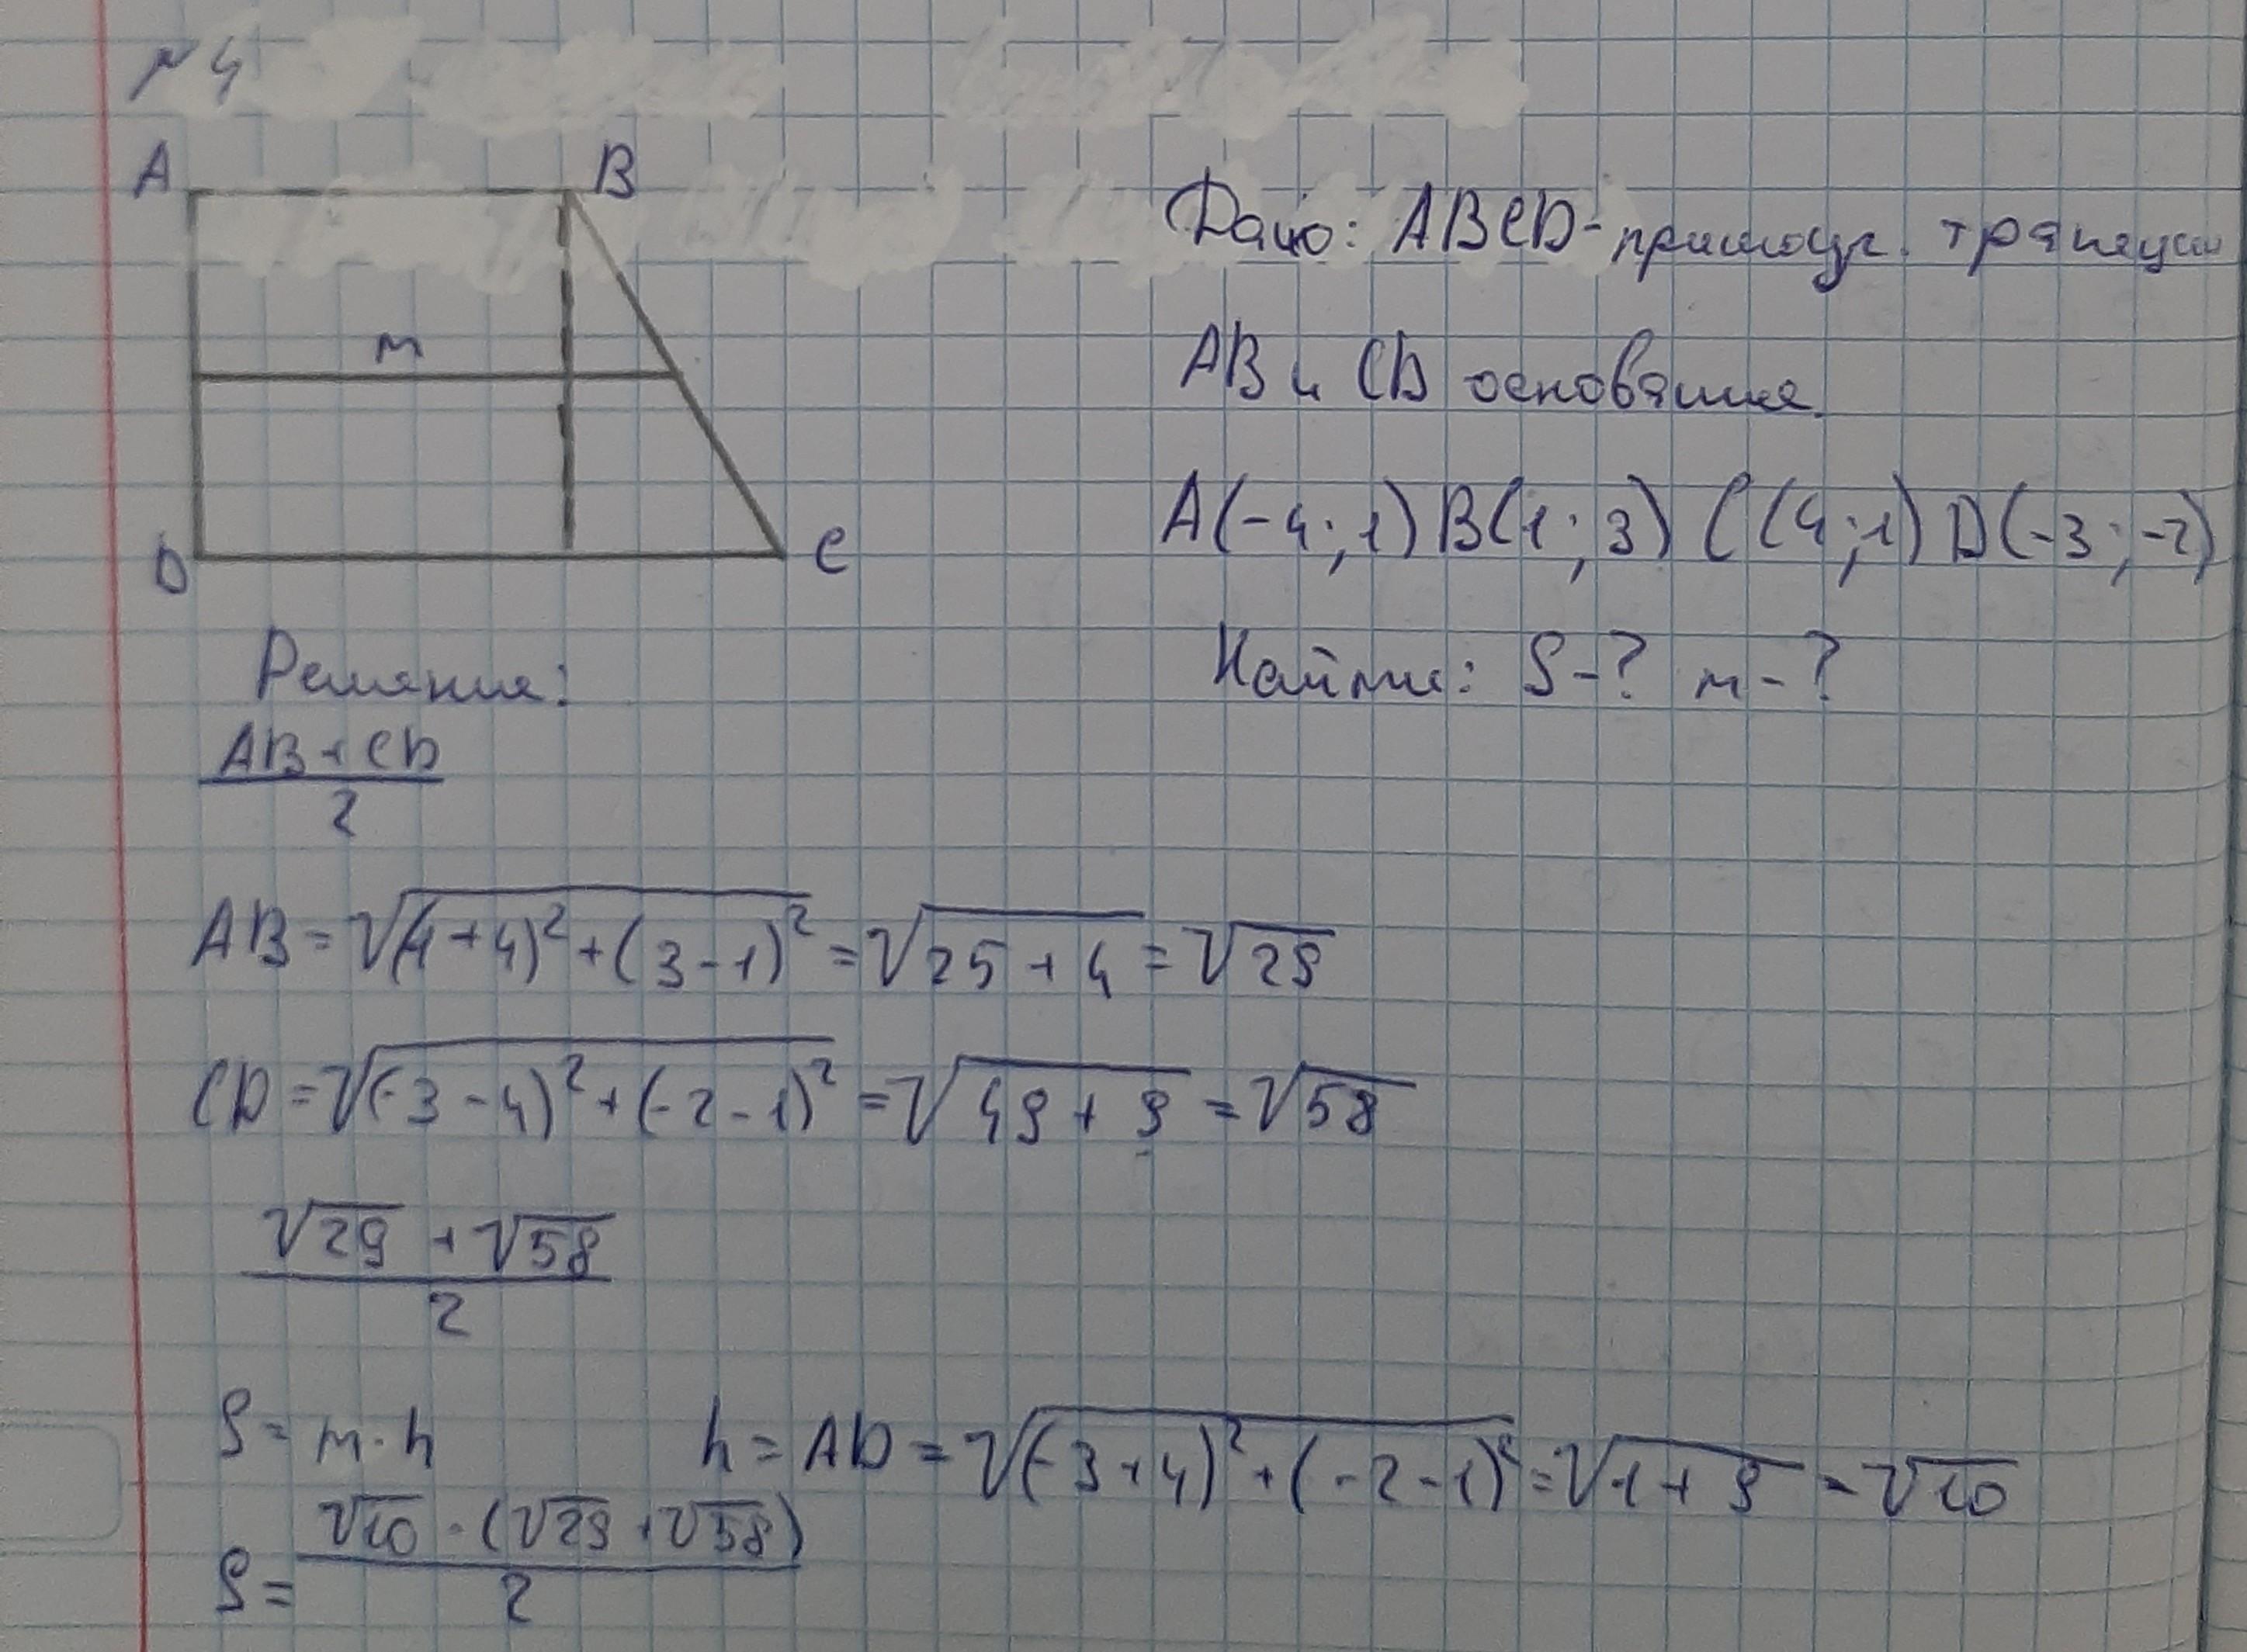 №4
A B
Дано: ABCD - прямоуг. трапеция
m
AB и CD основания.
A(-4;1) B(1;3) C(4;1) D(-3;-2)
D C
Найти: S-? m-?
Решение:
AB+CD
2
AB=√(4+4)²+(3-1)²=√25+4=√29
CD=√(-3-4)²+(-2-1)²=√49+9=√58
√29+√58
2
S=m·h h=AD=√(-3+4)²+(-2-1)²=√1+9=√10
S=√10·(√29+√58)
2